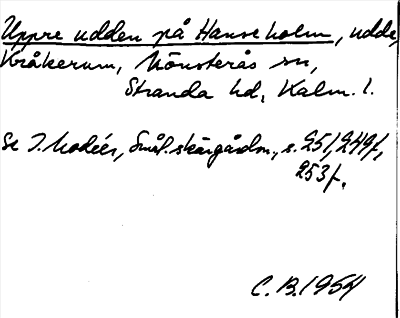 Uppre udden på Hanseholm, udde,
Kråkerum, Mönsterås sn,
Stranda hd, Kalm. l.
Se I. Modéer, Smål. skärgårdsn., s. 251, 249f,
253f.
C. B. 1954